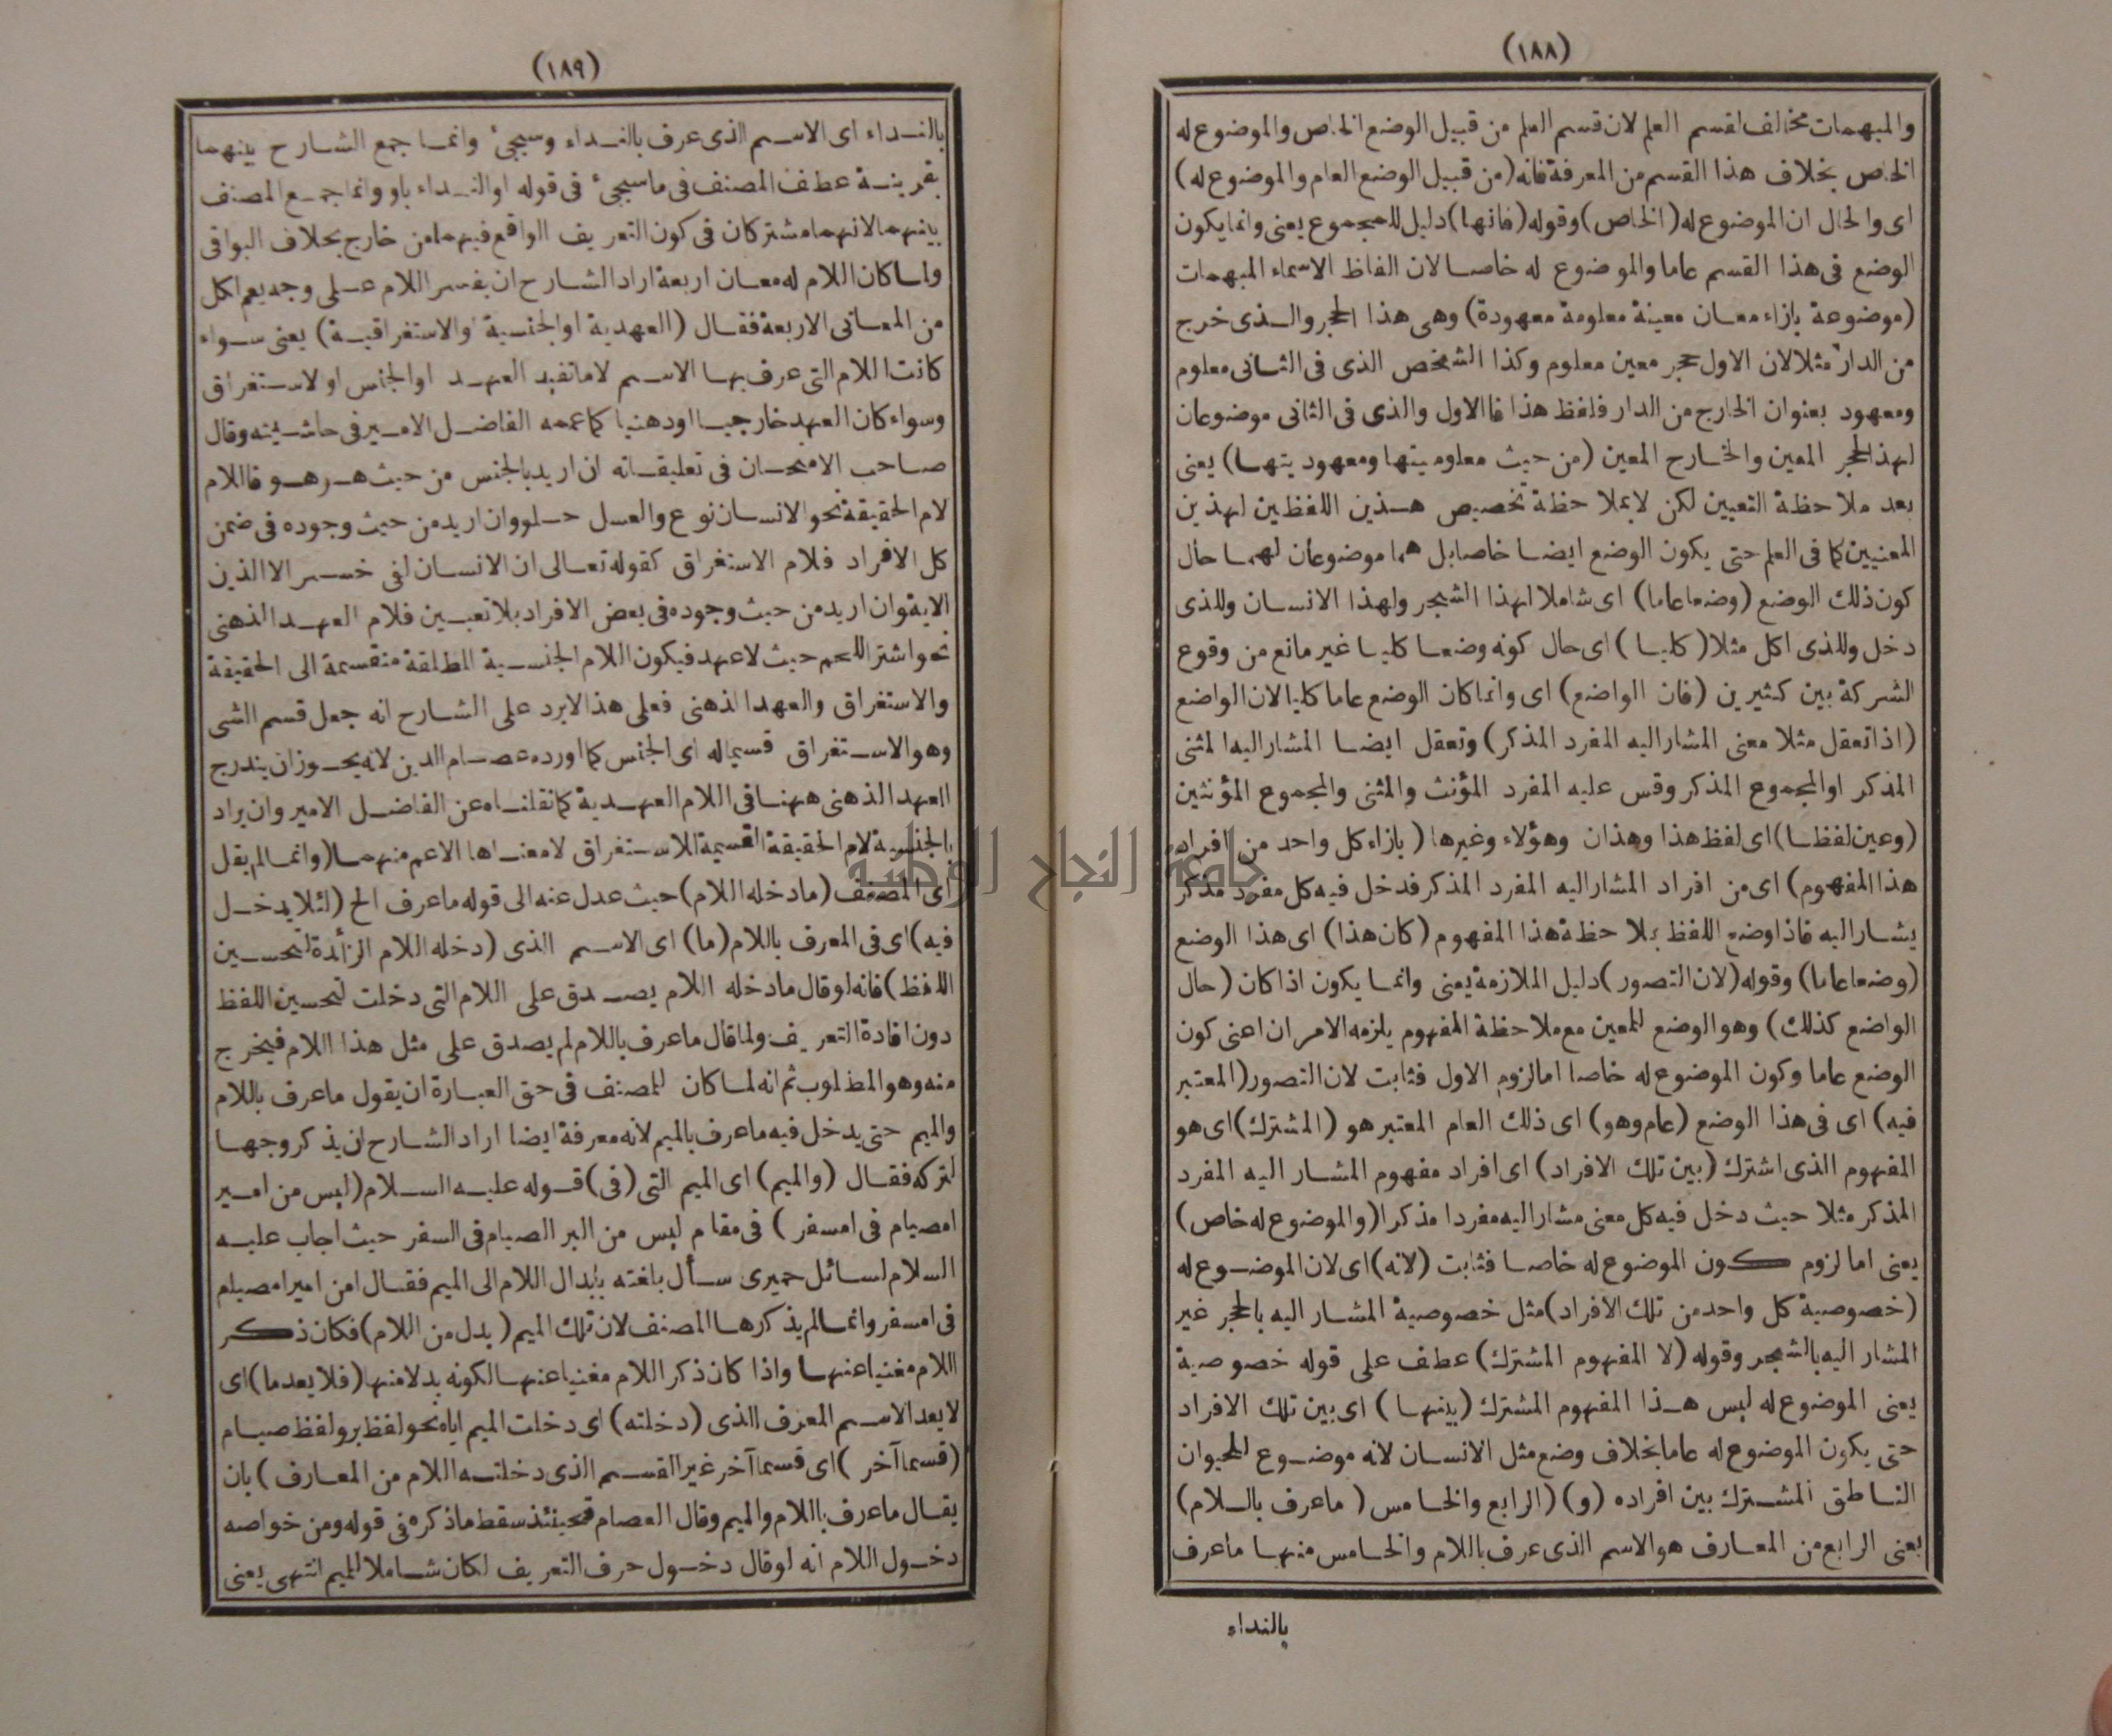 (١٨٨)
والمبهمات مخالف لقسم العلم لان قسم العلم من قبيل الوضع الخاص والموضوع له
الخاص بخلاف هذا القسم من المعرفة فانه (من قبيل الوضع العام والموضوع له)
اى والحال ان الموضوع له (الخاص) وقوله (فانها) دليل للمجموع يعنى وانما يكون
الوضع فى هذا القسم عاما والموضوع له خاصا لان الفاظ الاسماء المبهمات
(موضوعة بازاء معان معينة معلومة معهودة) وهى هذا الحجر والذى خرج
من الدار مثلا لان الاول حجر معين معلوم وكذا الشخص الذى فى الثانى معلوم
ومعهود بعنوان الخارج من الدار فلفظ هذا فى الاول والذى فى الثانى موضوعان
لهذا الحجر المعين والخارج المعين (من حيث معلوميتها ومعهوديتها) يعنى
بعد ملاحظة التعيين لكن لا بملاحظة تخصيص هذين اللفظين لهذين
المعنيين كما فى العلم حتى يكون الوضع ايضا خاصا بل هما موضوعان لهما حال
كون ذلك الوضع (وضعا عاما) اى شاملا لهذا الشجر ولهذا الانسان وللذى
دخل وللذى اكل مثلا (كليا) اى حال كونه وضعا كليا غير مانع من وقوع
الشركة بين كثيرين (فان الواضع) اى وانما كان الوضع عاما كليا لان الواضع
(اذا تعقل مثلا معنى المشار اليه المفرد المذكر) وتعقل ايضا المشار اليه المثنى
المذكر او المجموع المذكر وقس عليه المفرد المؤنث والمثنى والمجموع المؤنثين
(وعين لفظا) اى لفظ هذا وهذان وهؤلاء وغيرها (بازاء كل واحد من افراد
هذا المفهوم) اى من افراد المشار اليه المفرد المذكر فدخل فيه كل مفرد مذكر
يشار اليه فاذا وضع اللفظ بملاحظة هذا المفهوم (كان هذا) اى هذا الوضع
(وضعا عاما) وقوله (لان التصور) دليل الملازمة يعنى وانما يكون اذا كان (حال
الواضع كذلك) وهو الوضع للمعين مع ملاحظة المفهوم يلزمه الامر ان اعنى كون
الوضع عاما وكون الموضوع له خاصا اما لزوم الاول فثابت لان التصور (المعتبر
فيه) اى فى هذا الوضع (عام وهو) اى ذلك العام المعتبر هو (المشترك) اى هو
المفهوم الذى اشترك (بين تلك الافراد) اى افراد مفهوم المشار اليه المفرد
المذكر مثلا حيث دخل فيه كل معنى مشار اليه مفردا مذكرا (والموضوع له خاص)
يعنى اما لزوم كون الموضوع له خاصا فثابت (لانه) اى لان الموضوع له
(خصوصية كل واحد من تلك الافراد) مثل خصوصية المشار اليه بالحجر غير
المشار اليه بالشجر وقوله (لا المفهوم المشترك) عطف على قوله خصوصية
يعنى الموضوع له ليس هذا المفهوم المشترك (بينها) اى بين تلك الافراد
حتى يكون الموضوع له عاما بخلاف وضع مثل الانسان لانه موضوع للحيوان
الناطق المشترك بين افراده (و) (الرابع والخامس (ما عرف باللام)
يعنى الرابع من المعارف هو الاسم الذى عرف باللام والخامس منها ما عرف
بالنداء
(١٨٩)
بالنداء اى الاسم الذى عرف بالنداء وسيجئ وانما جمع الشارح بينهما
بقرينة عطف المصنف فى ما سيجئ فى قوله او النداء باو وانما جمع المصنف
بينهما لانهما مشتركان فى كون التعريف الواقع فيهما من خارج بخلاف البواقى
ولما كان اللام له معان اربعة اراد الشارح ان يفسر اللام على وجه يعم لكل
من المعانى الاربعة فقال (العهدية او الجنسية او الاستغراقية) يعنى سواء
كانت اللام التى عرف بها الاسم لاما تفيد العهد او الجنس او لاستغراق
وسواء كان العهد خارجيا او ذهنيا كما عممه الفاضل الامير فى حاشيته وقال
صاحب الامتحان فى تعليقاته ان اريد بالجنس من حيث هو هو فاللام
لام الحقيقة نحو الانسان نوع والعسل حلو وان اريد من حيث وجوده فى ضمن
كل الافراد فلام الاستغراق كقوله تعالى ان الانسان لفى خسر الا الذين
الاية وان اريد من حيث وجوده فى بعض الافراد بلا تعيين فلام العهد الذهنى
نحو اشتر اللحم حيث لا عهد فيكون اللام الجنسية المطلقة منقسمة الى الحقيقة
والاستغراق والعهد الذهنى فعلى هذا لا يرد على الشارح انه جعل قسم الشى
وهو الاستغراق قسيما له اى الجنس كما اورده عصام الدين لانه يجوز ان يندرج
العهد الذهنى ههنا فى اللام العهدية كما نقلناه عن الفاضل الامير وان يراد
بالجنسية لام الحقيقة القسيمة للاستغراق لا معناها الاعم منهما (وانما لم يقل
اى المصنف (ما دخله اللام) حيث عدل عنه الى قوله ما عرف الخ (لئلا يدخل
فيه) اى فى المعرف باللام (ما) اى الاسم الذى (دخله اللام الزائدة لتحسين
اللفظ) فانه لو قال ما دخله اللام يصدق على اللام التى دخلت لتحسين اللفظ
دون افادة التعريف ولما قال ما عرف باللام لم يصدق على مثل هذا اللام فيخرج
منه وهو المطلوب ثم انه لما كان للمصنف فى حق العبارة ان يقول ما عرف باللام
والميم حتى يدخل فيه ما عرف بالميم لانه معرفة ايضا اراد الشارح ان يذكر وجها
لتركه فقال (والميم) اى الميم التى (فى) قوله عليه السلام (ليس من امبر
امصيام فى امسفر) فى مقام ليس من البر الصيام فى السفر حيث اجاب عليه
السلام لسائل حميرى سأل بلغته بابدال اللام الى الميم فقال امن امبر امصيام
فى امسفر وانما لم يذكرها المصنف لان تلك الميم (بدل من اللام) فكان ذكر
اللام مغنيا عنها واذا كان ذكر اللام مغنيا عنها لكونه بدلا منها (فلا يعد ما) اى
لا يعد الاسم المعرف الذى (دخلته) اى دخلت الميم اياه نحو لفظ بر ولفظ صيام
(قسما آخر) اى قسما آخر غير القسم الذى دخلته اللام من المعارف) بان
يقال ما عرف باللام والميم وقال العصام فحينئذ سقط ما ذكره فى قوله ومن خواصه
دخول اللام انه لو قال دخول حرف التعريف لكان شاملا للميم انتهى يعنى
جامعة النجاح الوطنية